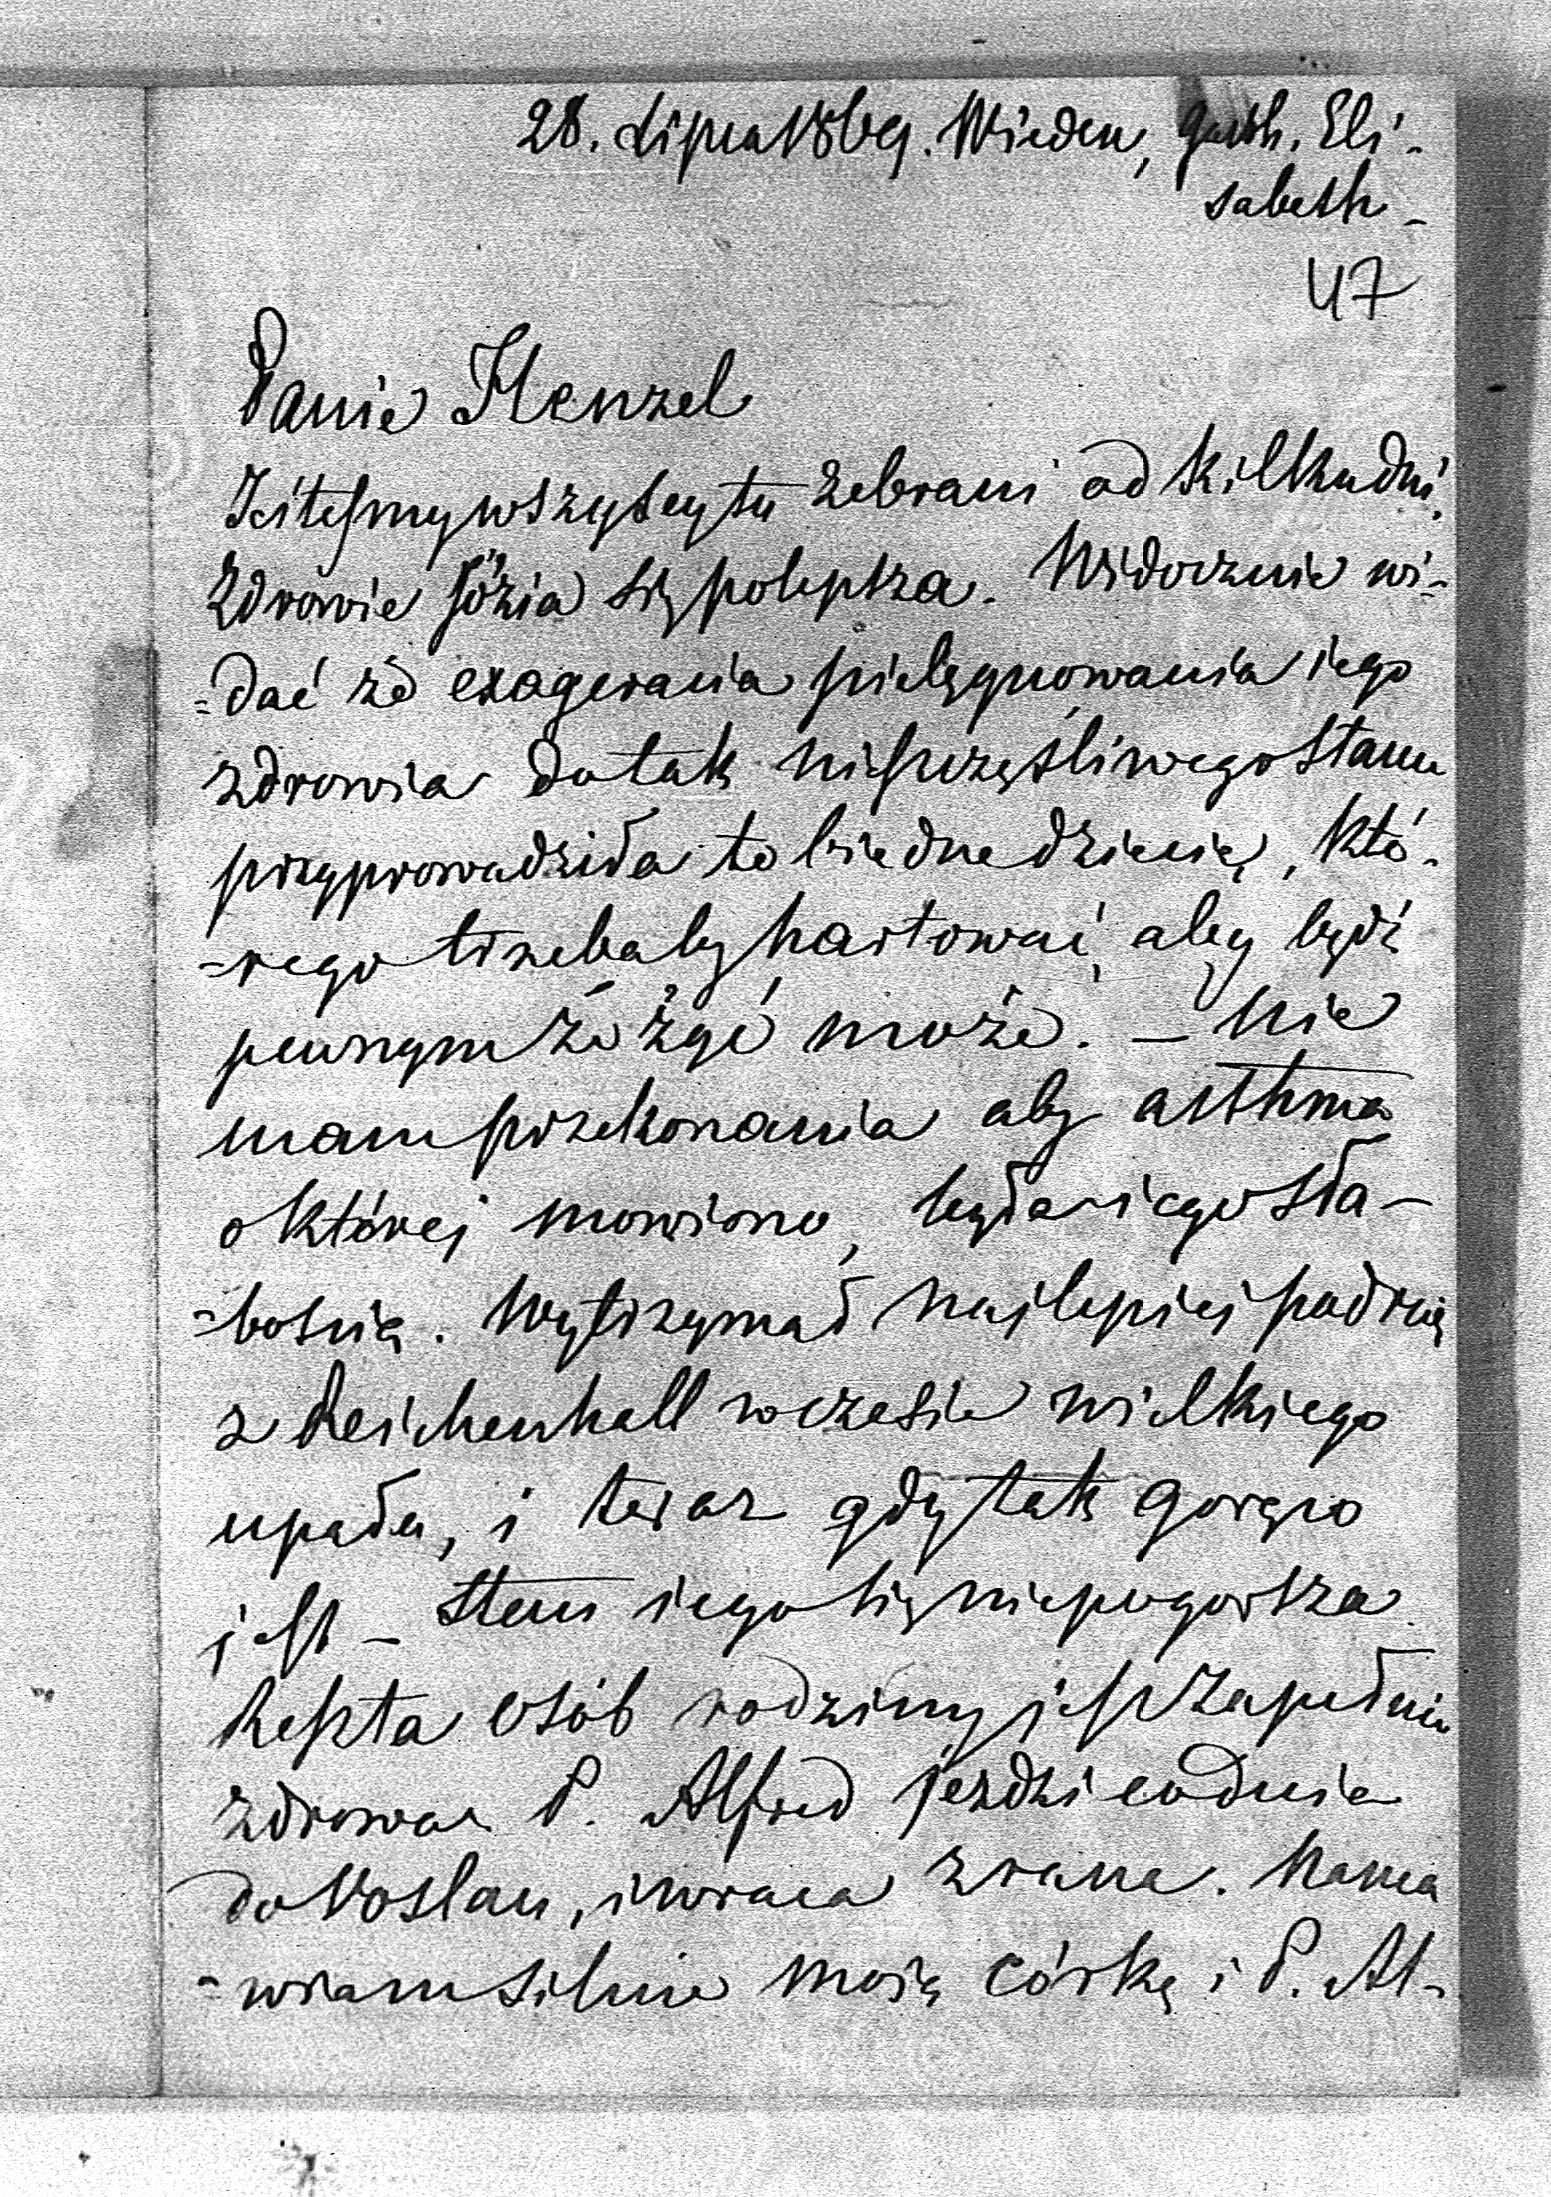 28. Lipca 1869. Wieden, Gasth. Eli-
sabeth -
47
Panie Henzel
Jestesmy wszyscy tu zebrani od kilku dni.
Zdrowie Józia się polepsza. Widocznie wi-
=dać że exageracia pielęgnowania iego
zdrowia do tak nieszczęśliwego stanu
przyprowadziła to biedne dziecię, któ-
-rego trzebaby hartować, aby bydź
pewnym że żyć może. - Nie
mam przekonania aby asthma
o której mowiono, była iego sła-
=bością. Wytrzymał najlepiej podróż
z Reichenhall w czasie wielkiego
upału, i teraz gdy tak gorąco
jest - stan iego się nie pogorsza.
Reszta osób rodziny jest zupełnie
zdrowa. P. Alfred jezdzi codnia
do Voslau, i wraca z rana. Nama
-wiam silnie moią córkę i P. Al-